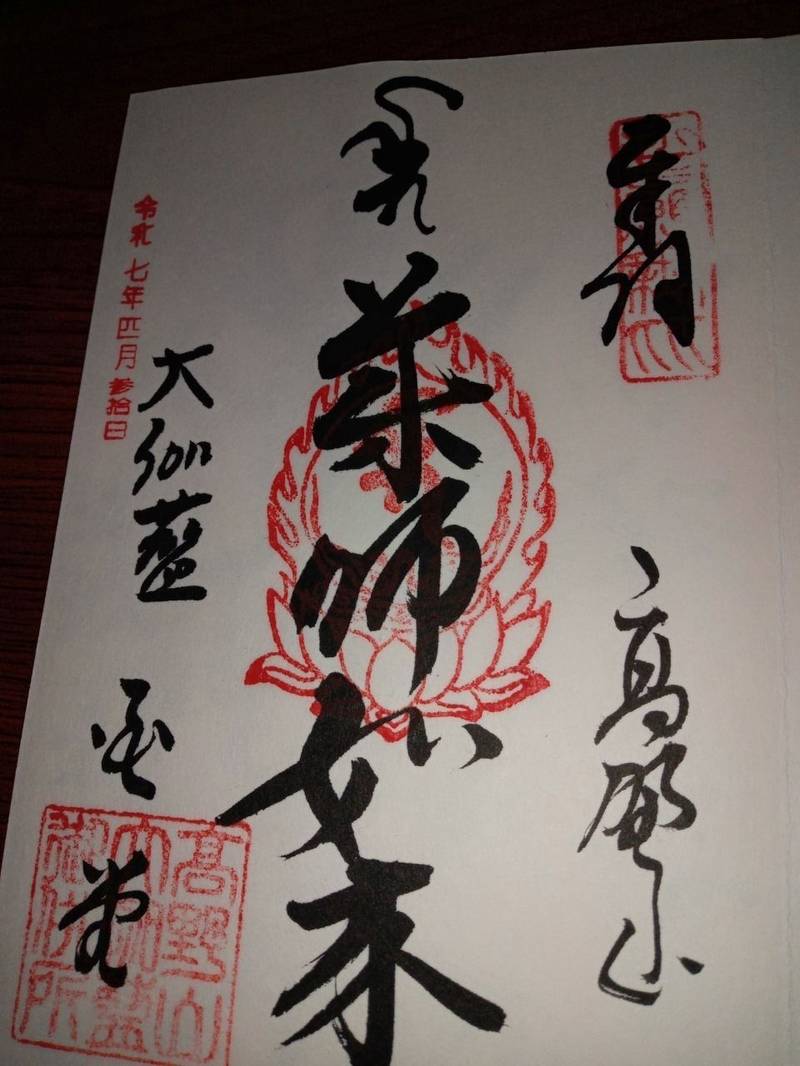 奉拝
高野山
薬師如来
大伽藍
金堂
令和七年四月参拾日
高野山
大伽藍
御供所